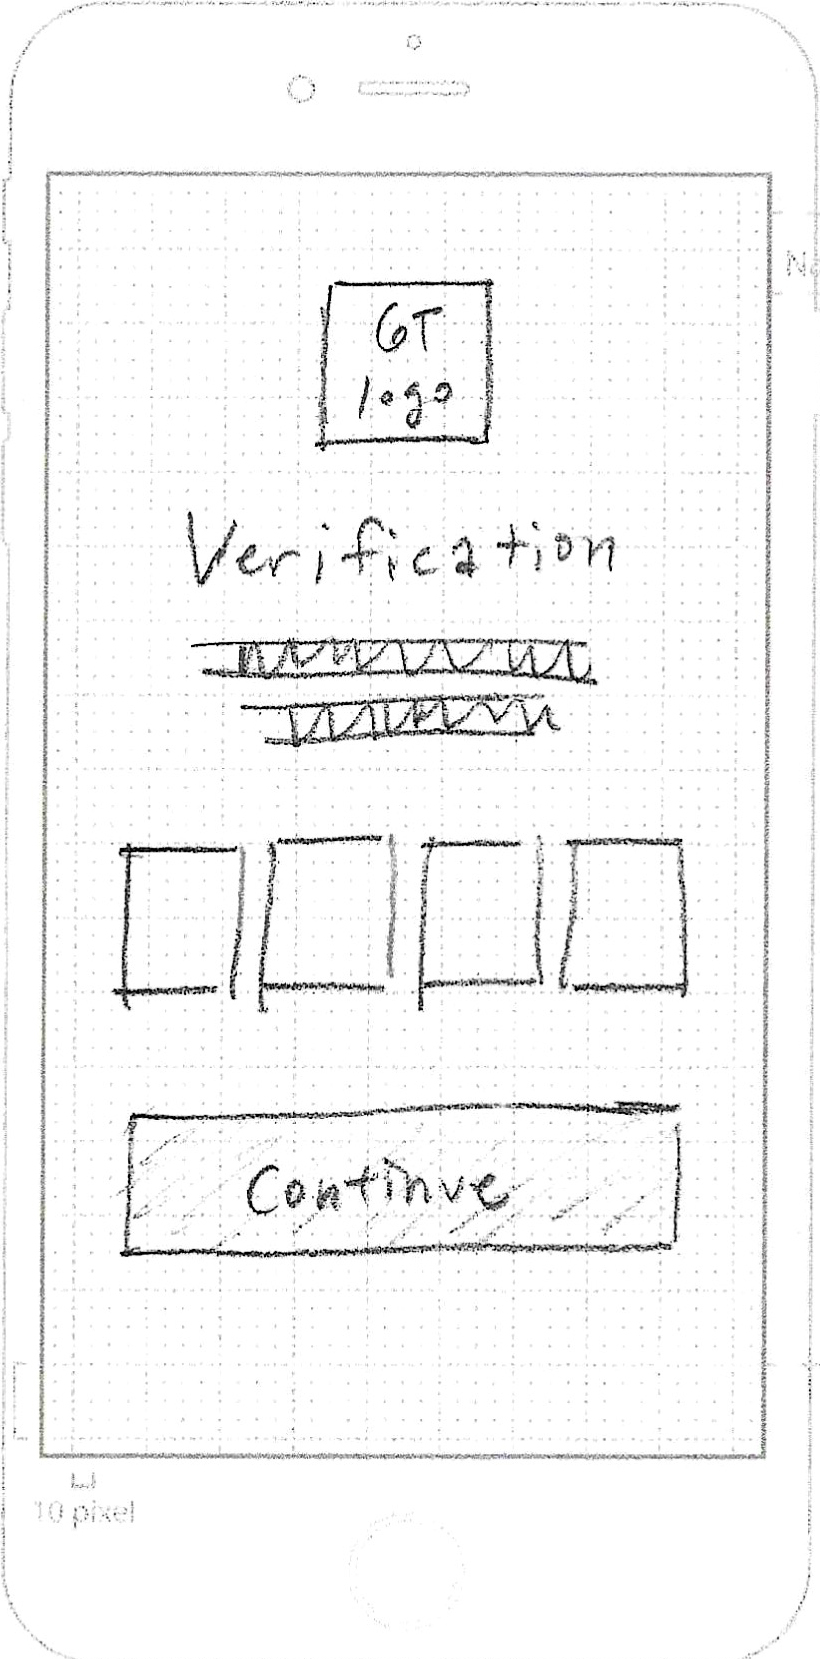 GT
logo
Verification
Continue
10 pixel